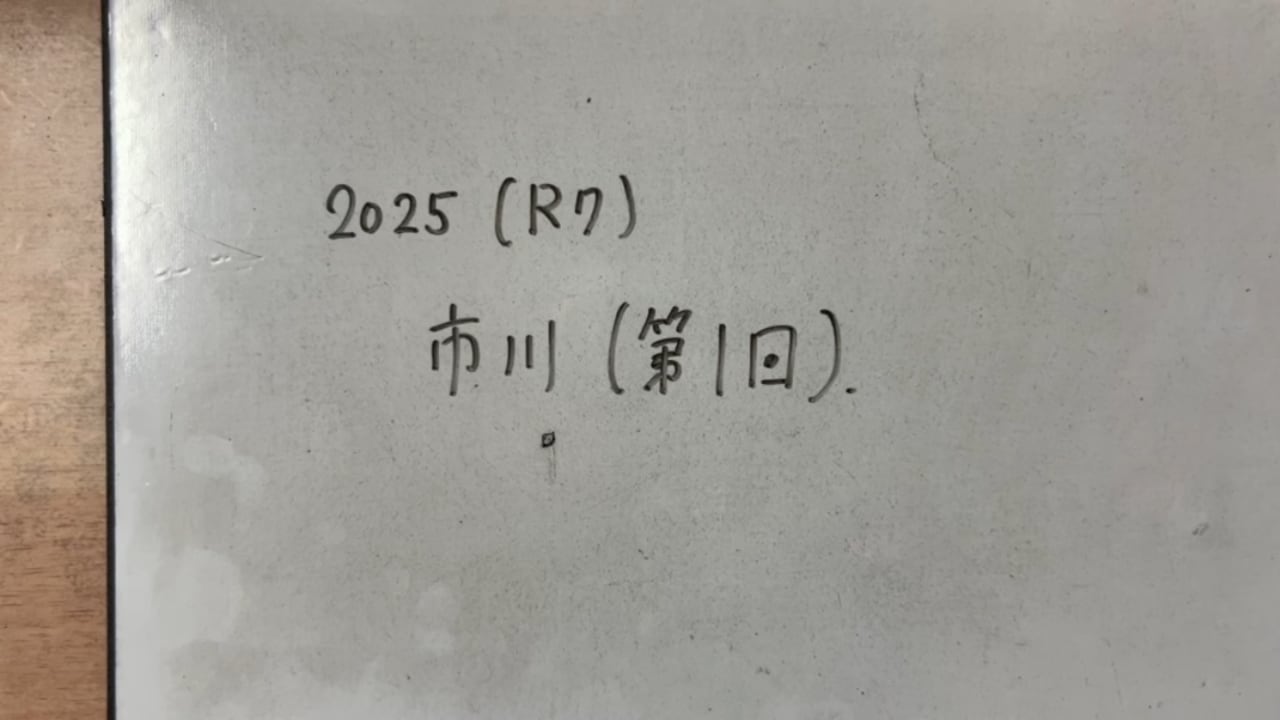 2025 (R7)
市川 (第1回).